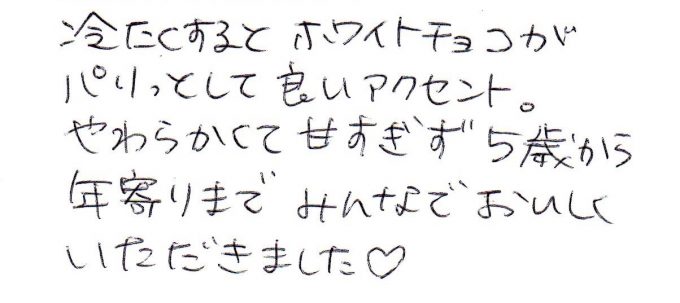 冷たくすると ホワイトチョコが
パリっとして 良いアクセント。
やわらかくて 甘すぎず 5歳から
年寄りまで みんなで おいしく
いただきました♡